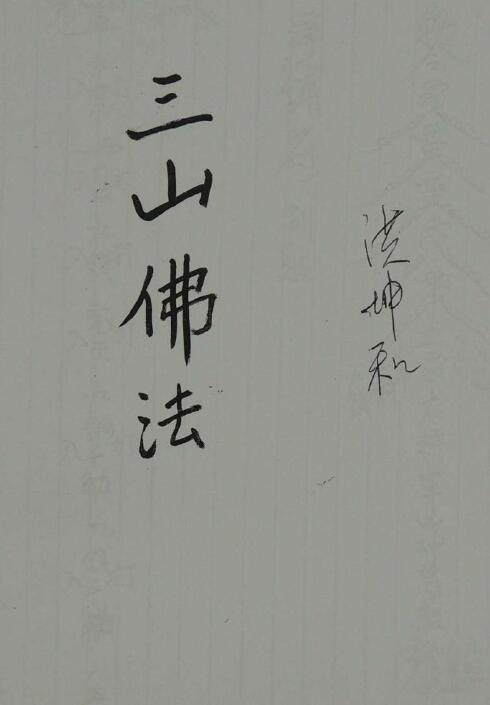 洪坤和
三山佛法